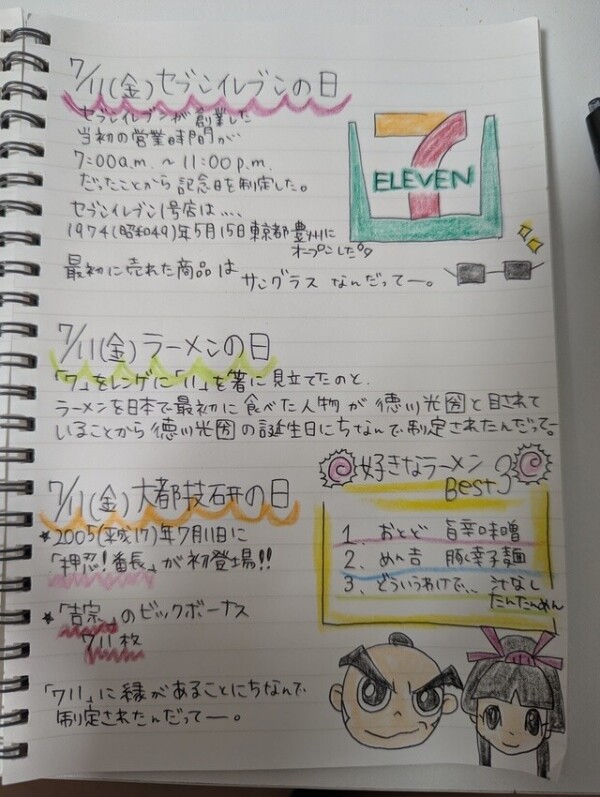 7/11(金)セブンイレブンの日
セブンイレブンが創業した
当初の営業時間が
7:00a.m. ~ 11:00 p.m.
だったことから記念日を制定した。
セブンイレブン1号店は....
1974(昭和49)年5月15日東京都豊州に
オープンした
最初に売れた商品は サングラス なんだってー。
7 ELEVEN
7/11(金)ラーメンの日
「7」をレンゲに「11」を箸に見立てたのと、
ラーメンを日本で最初に食べた人物が徳川光圀と目されて
いることから徳川光圀の誕生日にちなんで制定されたんだってー
7/11(金)大都技研の日
★2005(平成17)年7月11日に
「押忍!番長」が初登場!!
★「吉宗」のビックボーナス
711枚
「711」に縁があることにちなんで
制定されたんだってー。
好きなラーメン
Best3
1. おとど 旨辛味噌
2. めん吉 豚辛子麺
3. どういうわけで... 汁なし
たんたんめん